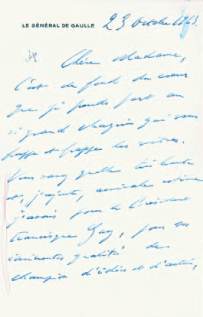 LE GÉNÉRAL DE GAULLE
23 octobre 1963
Chère Madame,
C'est du fond du cœur
que je prends part au
si grand chagrin qui vous
frappe et frappe les vôtres.
Vous savez quelle très haute
et, j'ajoute, amicale estime
j'avais pour le Président
Francisque Gay, pour ses
éminentes qualités de
champion d'idées et d'action,